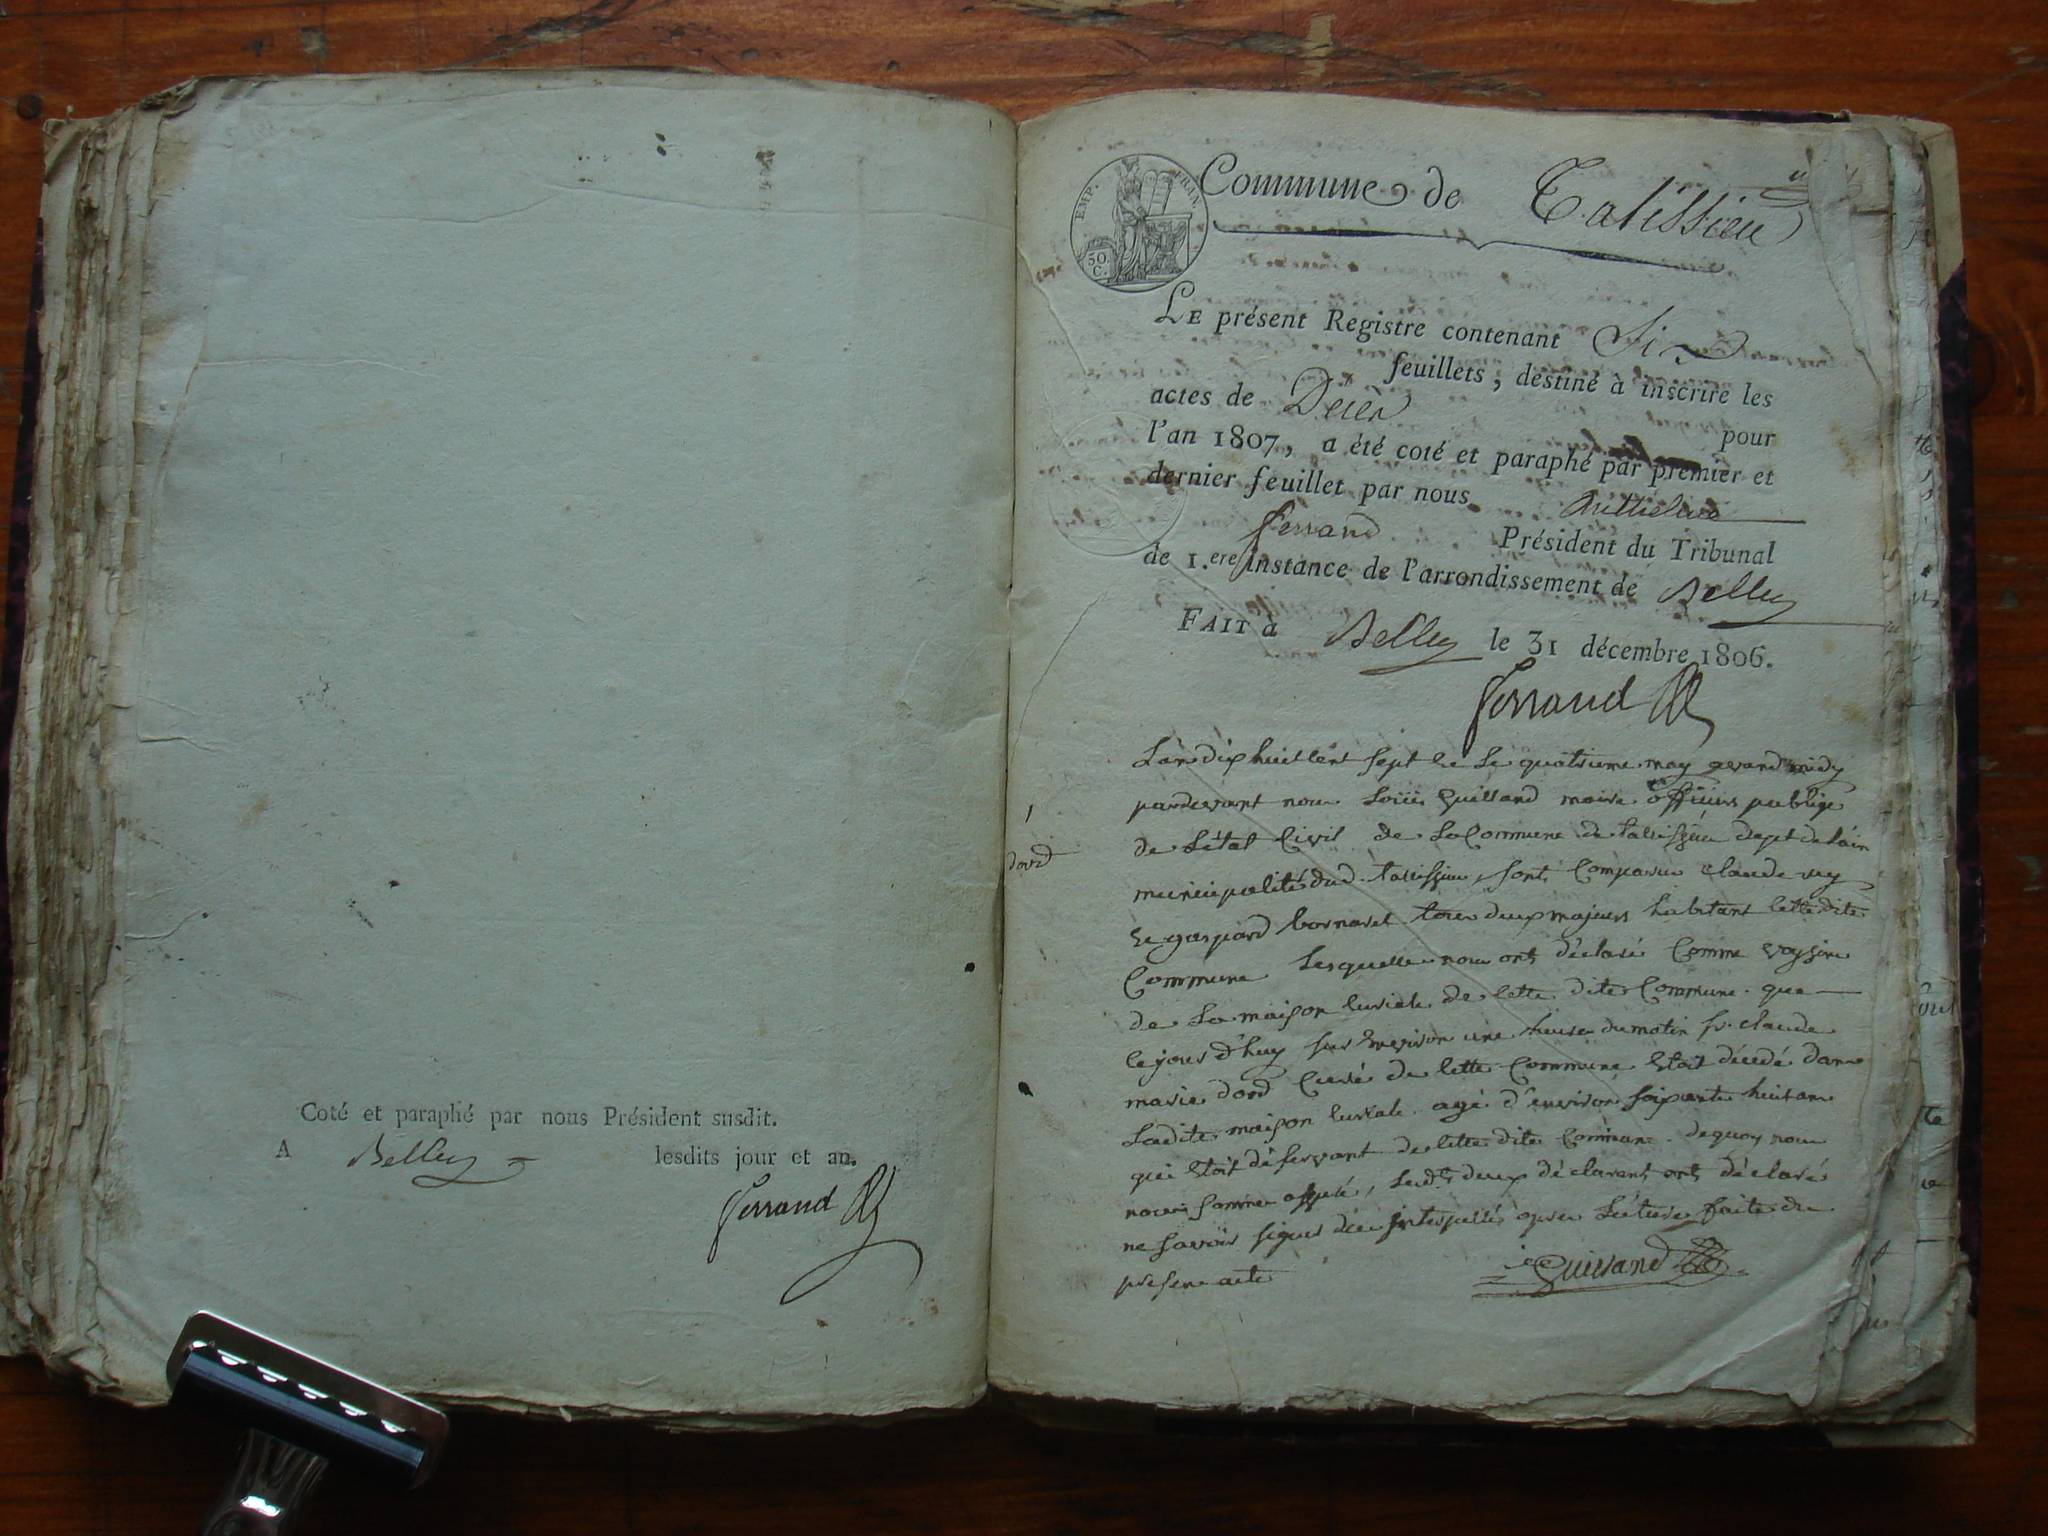 Coté et paraphé par nous Président susdit.
A Belley lesdits jour et an.
Ferrand
EMP. FRAN.
50 C.
Commune de Talissieu
LE présent Registre contenant Six
feuillets, destiné à inscrire les
actes de Décès pour
l'an 1807, a été coté et paraphé par premier et
dernier feuillet par nous Anthelme
Ferrand Président du Tribunal
de 1.ere Instance de l'arrondissement de Belley
FAIT à Belley le 31 décembre 1806.
Ferrand
L'an dix huit cent sept & le quatrieme may avant midy
pardevant nous Louis Guilland maire officier publique
de L'état Civil de La Commune de talissieu dept de l'ain
municipalité dud. talissieu, sont Comparu claude
& gaspard bornaret tous deux majeurs habitant cette dite
Commune Lesquelles nous ont déclaré Comme voysins
de La maison curiale de cette dite Commune que
cejourd'huy sur Environ une heure du matin sr. claude
marie dord Curé de cette Commune Etoit décédé dans
Ladite maison curiale agé d'environ soixante huit ans
qui Etoit déservant de cette dite Commune. dequoy nous
nous somme assuré, Lesdts deux déclarant ont déclaré
ne savoir signer de ce interpellés apres Lécture faite du
present acte
Guilland
1
dord